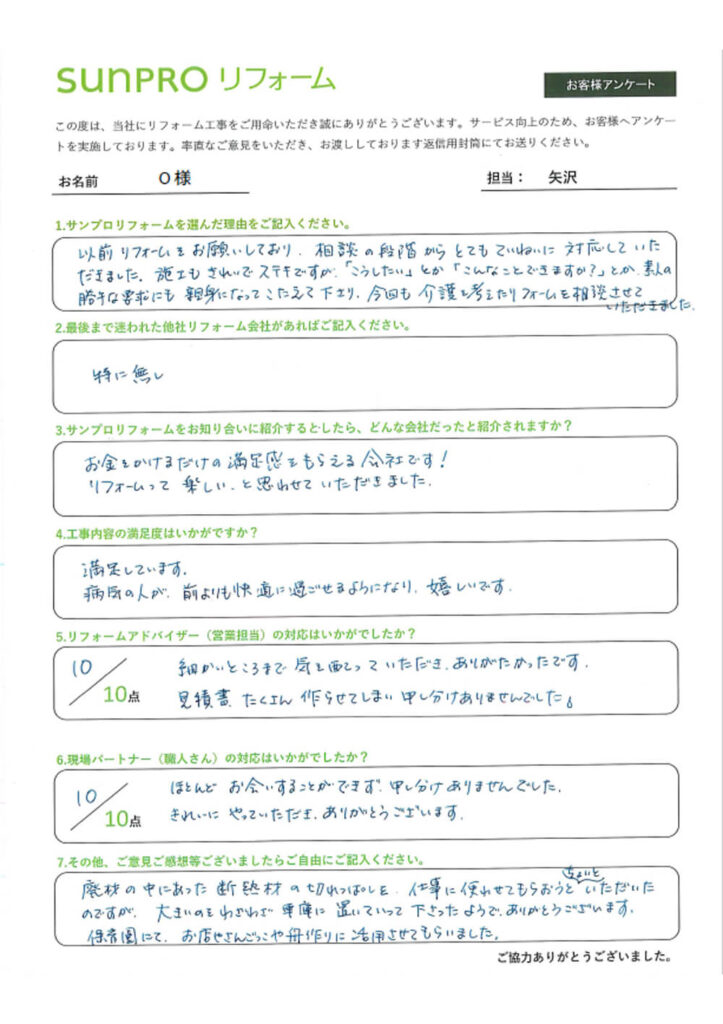 sunPRO リフォーム
お客様アンケート
この度は、当社にリフォーム工事をご用命いただき誠にありがとうございます。サービス向上のため、お客様へアンケー
トを実施しております。率直なご意見をいただき、お渡ししております返信用封筒にてお送りください。
お名前 O 様 担当： 矢沢
1.サンプロリフォームを選んだ理由をご記入ください。
以前リフォームをお願いしており、相談の段階からとてもていねいに対応していた
だきました。施工もきれいでステキですが、「こうしたい」とか「こんなことできますか?」とか、素人の
勝手な要求にも親身になってこたえて下さり、今回も介護を考えたリフォームを相談させて
いただきました。
2.最後まで迷われた他社リフォーム会社があればご記入ください。
特に無し
3.サンプロリフォームをお知り合いに紹介するとしたら、どんな会社だったと紹介されますか？
お金をかけるだけの満足感をもらえる会社です!
リフォームって楽しい、と思わせていただきました。
4.工事内容の満足度はいかがですか？
満足しています。
病気の人が、前よりも快適に過ごせるようになり、嬉しいです。
5.リフォームアドバイザー（営業担当）の対応はいかがでしたか？
10/10点 細かいところまで気を配っていただき、ありがたかったです。
見積書、たくさん作らせてしまい申し分けありませんでした。
6.現場パートナー（職人さん）の対応はいかがでしたか？
10/10点 ほとんどお会いすることができず、申し分けありませんでした。
きれいにやっていただき、ありがとうございます。
7.その他、ご意見ご感想等ございましたらご自由にご記入ください。
廃材の中にあった断熱材の切れっぱしを、仕事に使わせてもらおうとちょいといただいた
のですが、大きいのをわざわざ車庫に置いていって下さったようで、ありがとうございます。
保育園にて、お店やさんごっこや舟作りに活用させてもらいました。
ご協力ありがとうございました。